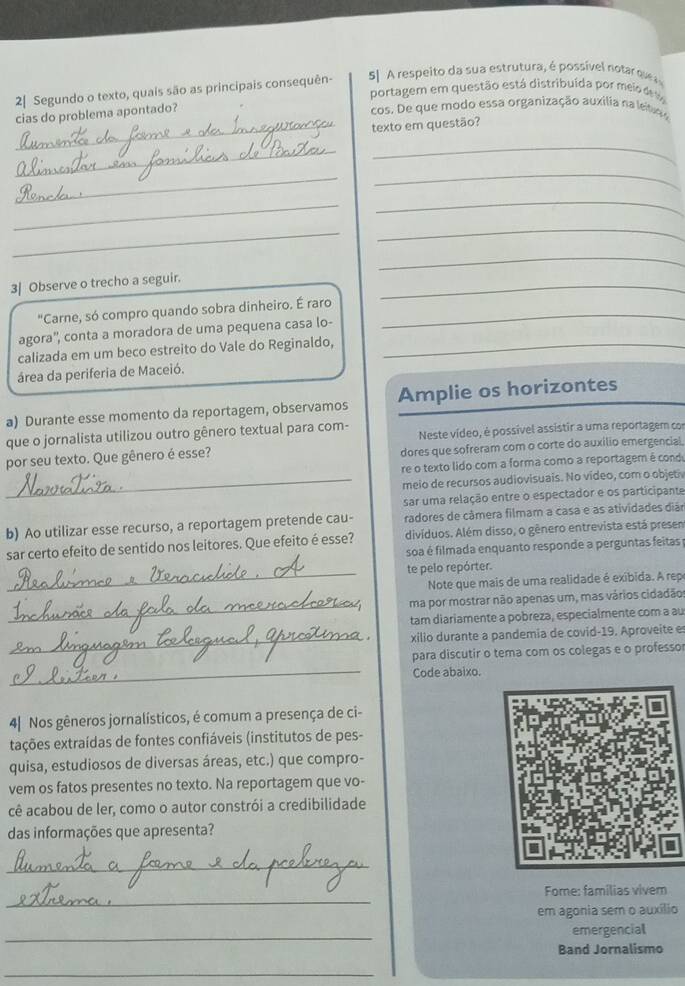 2| Segundo o texto, quais são as principais consequên-
cias do problema apontado?
Aumento da fome e da Insegurança
alimentar em famílias de Baixa
Renda.
3| Observe o trecho a seguir.
"Carne, só compro quando sobra dinheiro. É raro
agora", conta a moradora de uma pequena casa lo-
calizada em um beco estreito do Vale do Reginaldo,
área da periferia de Maceió.
a) Durante esse momento da reportagem, observamos
que o jornalista utilizou outro gênero textual para com-
por seu texto. Que gênero é esse?
Narrativa.
b) Ao utilizar esse recurso, a reportagem pretende cau-
sar certo efeito de sentido nos leitores. Que efeito é esse?
e A
da fala da
em linguagem
4| Nos gêneros jornalísticos, é comum a presença de ci-
tações extraídas de fontes confiáveis (institutos de pes-
quisa, estudiosos de diversas áreas, etc.) que compro-
vem os fatos presentes no texto. Na reportagem que vo-
cê acabou de ler, como o autor constrói a credibilidade
das informações que apresenta?
Aumenta a fome e da
extrema.
5| A respeito da sua estrutura, é possível notar que
portagem em questão está distribuída por meio de
cos. De que modo essa organização auxilia na
texto em questão?
Amplie os horizontes
Neste vídeo, é possível assistir a uma reportagem
dores que sofreram com o corte do auxílio emergencial.
re o texto lido com a forma como a reportagem é
meio de recursos audiovisuais. No vídeo, com o
sar uma relação entre o espectador e os participante
radores de câmera filmam a casa e as atividades
divíduos. Além disso, o gênero entrevista está
soa é filmada enquanto responde a perguntas feitas
te pelo repórter.
Note que mais de uma realidade é exibida. A
ma por mostrar não apenas um, mas vários
tam diariamente a pobreza, especialmente com a
xílio durante a pandemia de covid-19. Aproveite
para discutir o tema com os colegas e o
Code abaixo.
Fome: famílias vivem
em agonia sem o auxílio
emergencial
Band Jornalismo